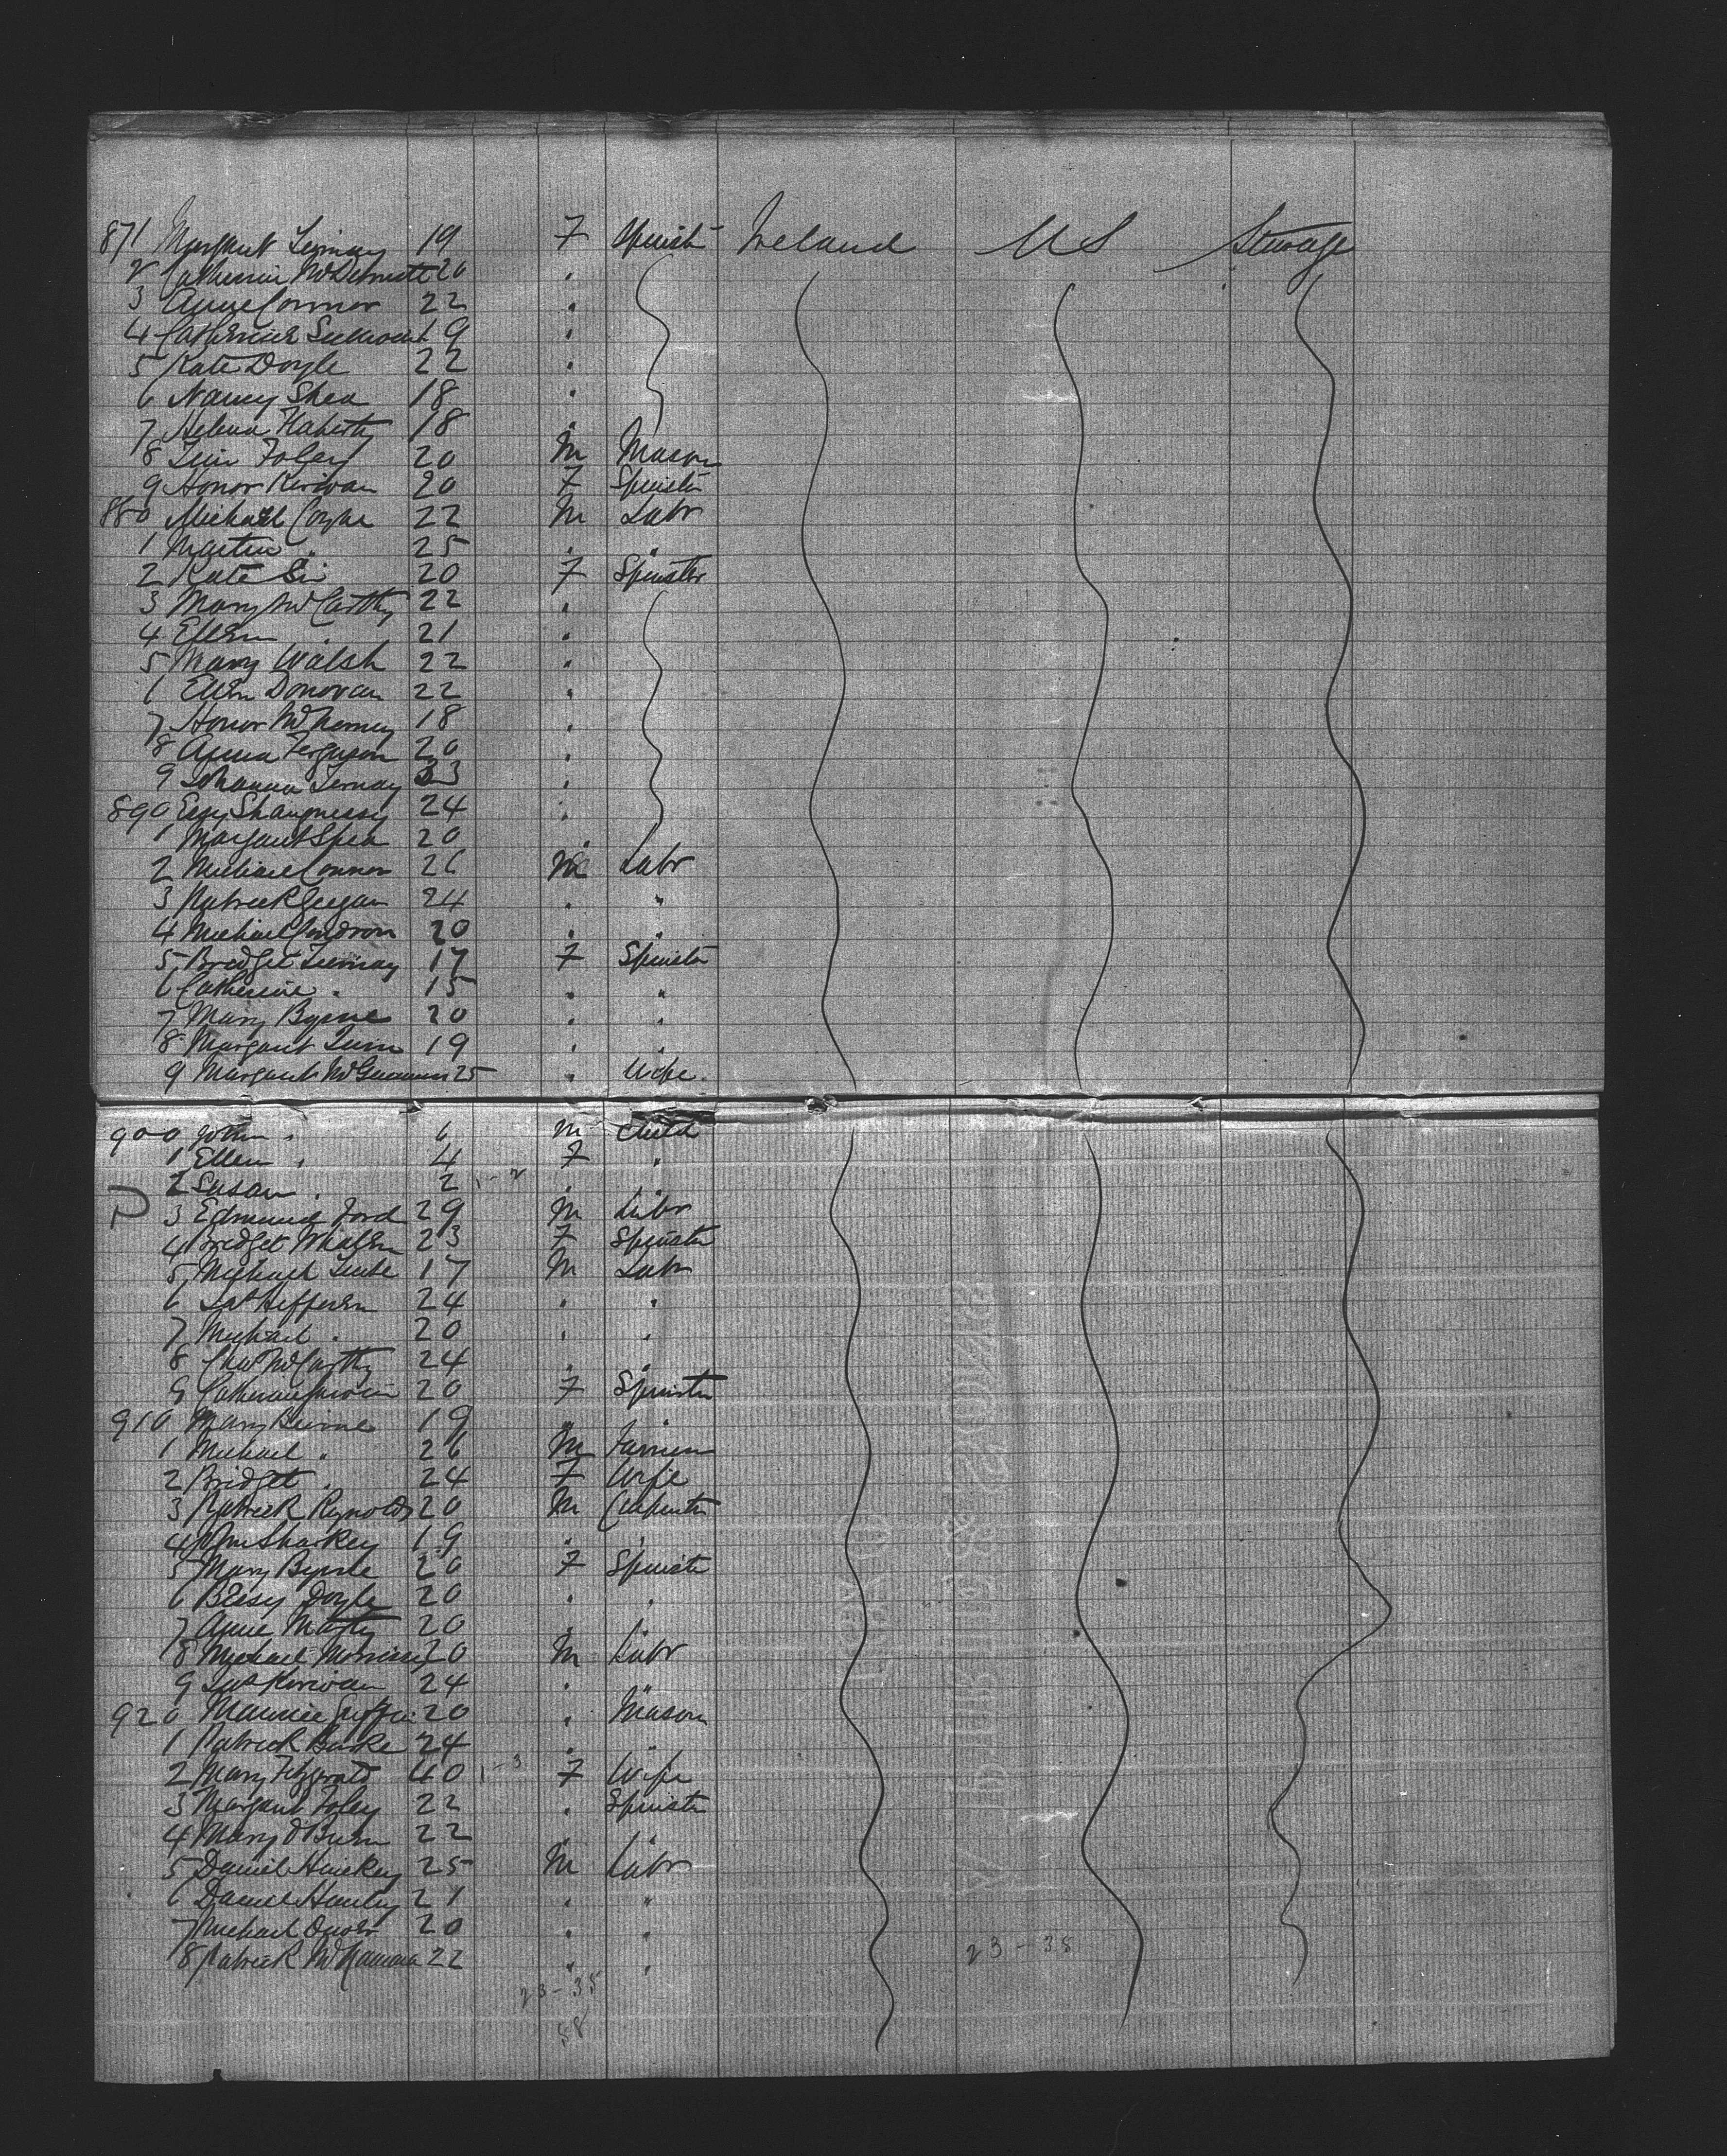 871 Margaret Tiernay 19 F Spinstr Ireland US Steerage
2 Catherine McDermott 20 "
3 Anne Connor 22 "
4 Catherine 19 "
5 Kate Doyle 22 "
6 Nancy Shea 18 "
7 Helena Flaherty 18 "
8 Foley 20 M Mason
9 Honor Kirwan 20 F Spinstr
880 Michael Coyne 22 M Labr
1 Martin " 25 " "
2 Kate 20 F Spinster
3 Mary McCarthy 22 "
4 Ellen " 21 "
5 Mary Walsh 22 "
6 Ellen Donovan 22 "
7 Honor 18 "
8 Anna Ferguson 20 "
9 Johanna Ternay 23 "
890 Shaugnessy 24 "
1 Margaret Shea 20 "
2 Michael Connor 26 M Labr
3 Patrick Geegan 24 " "
4 Michael Condron 20 " "
5 Bridget Tiernay 17 F Spinstr
6 Catherine " 15 " "
7 Mary Byrne 20 " "
8 Margaret 19 " "
9 Margaret 25 " Wife
900 John " 6 M Child
1 Ellen " 4 F "
2 Susan " 2 " "
3 Edmund Ford 29 M Labr
4 Bridget Whalen 23 F Spinstr
5 Michael 17 M Labr
6 Jas Heffern 24 " "
7 Michael " 20 " "
8 Chas McCarthy 24 " "
9 Catherine 20 F Spinstr
910 Mary Beirne 19 " "
1 Michael " 26 M Farmer
2 Bridget " 24 F Wife
3 Patrick Reynolds 20 M Carpentr
4 Wm Sharkey 19 " "
5 Mary Byrne 20 F Spinstr
6 Betsy Doyle 20 " "
7 Anne 20 " "
8 Michael Morrissey 20 M Labr
9 Jas Kirwan 24 " "
920 Maurice Griffin 20 " Mason
1 Patrick Burke 24 " "
2 Mary Fitzgerald 40 F Wife
3 Margaret Foley 22 " Spinstr
4 Mary 22 " "
5 Daniel Hickey 25 M Labr
6 Daniel Hanley 21 " "
7 Michael 20 " "
8 Patrick McNamara 22 " "
23-38
23-35
58